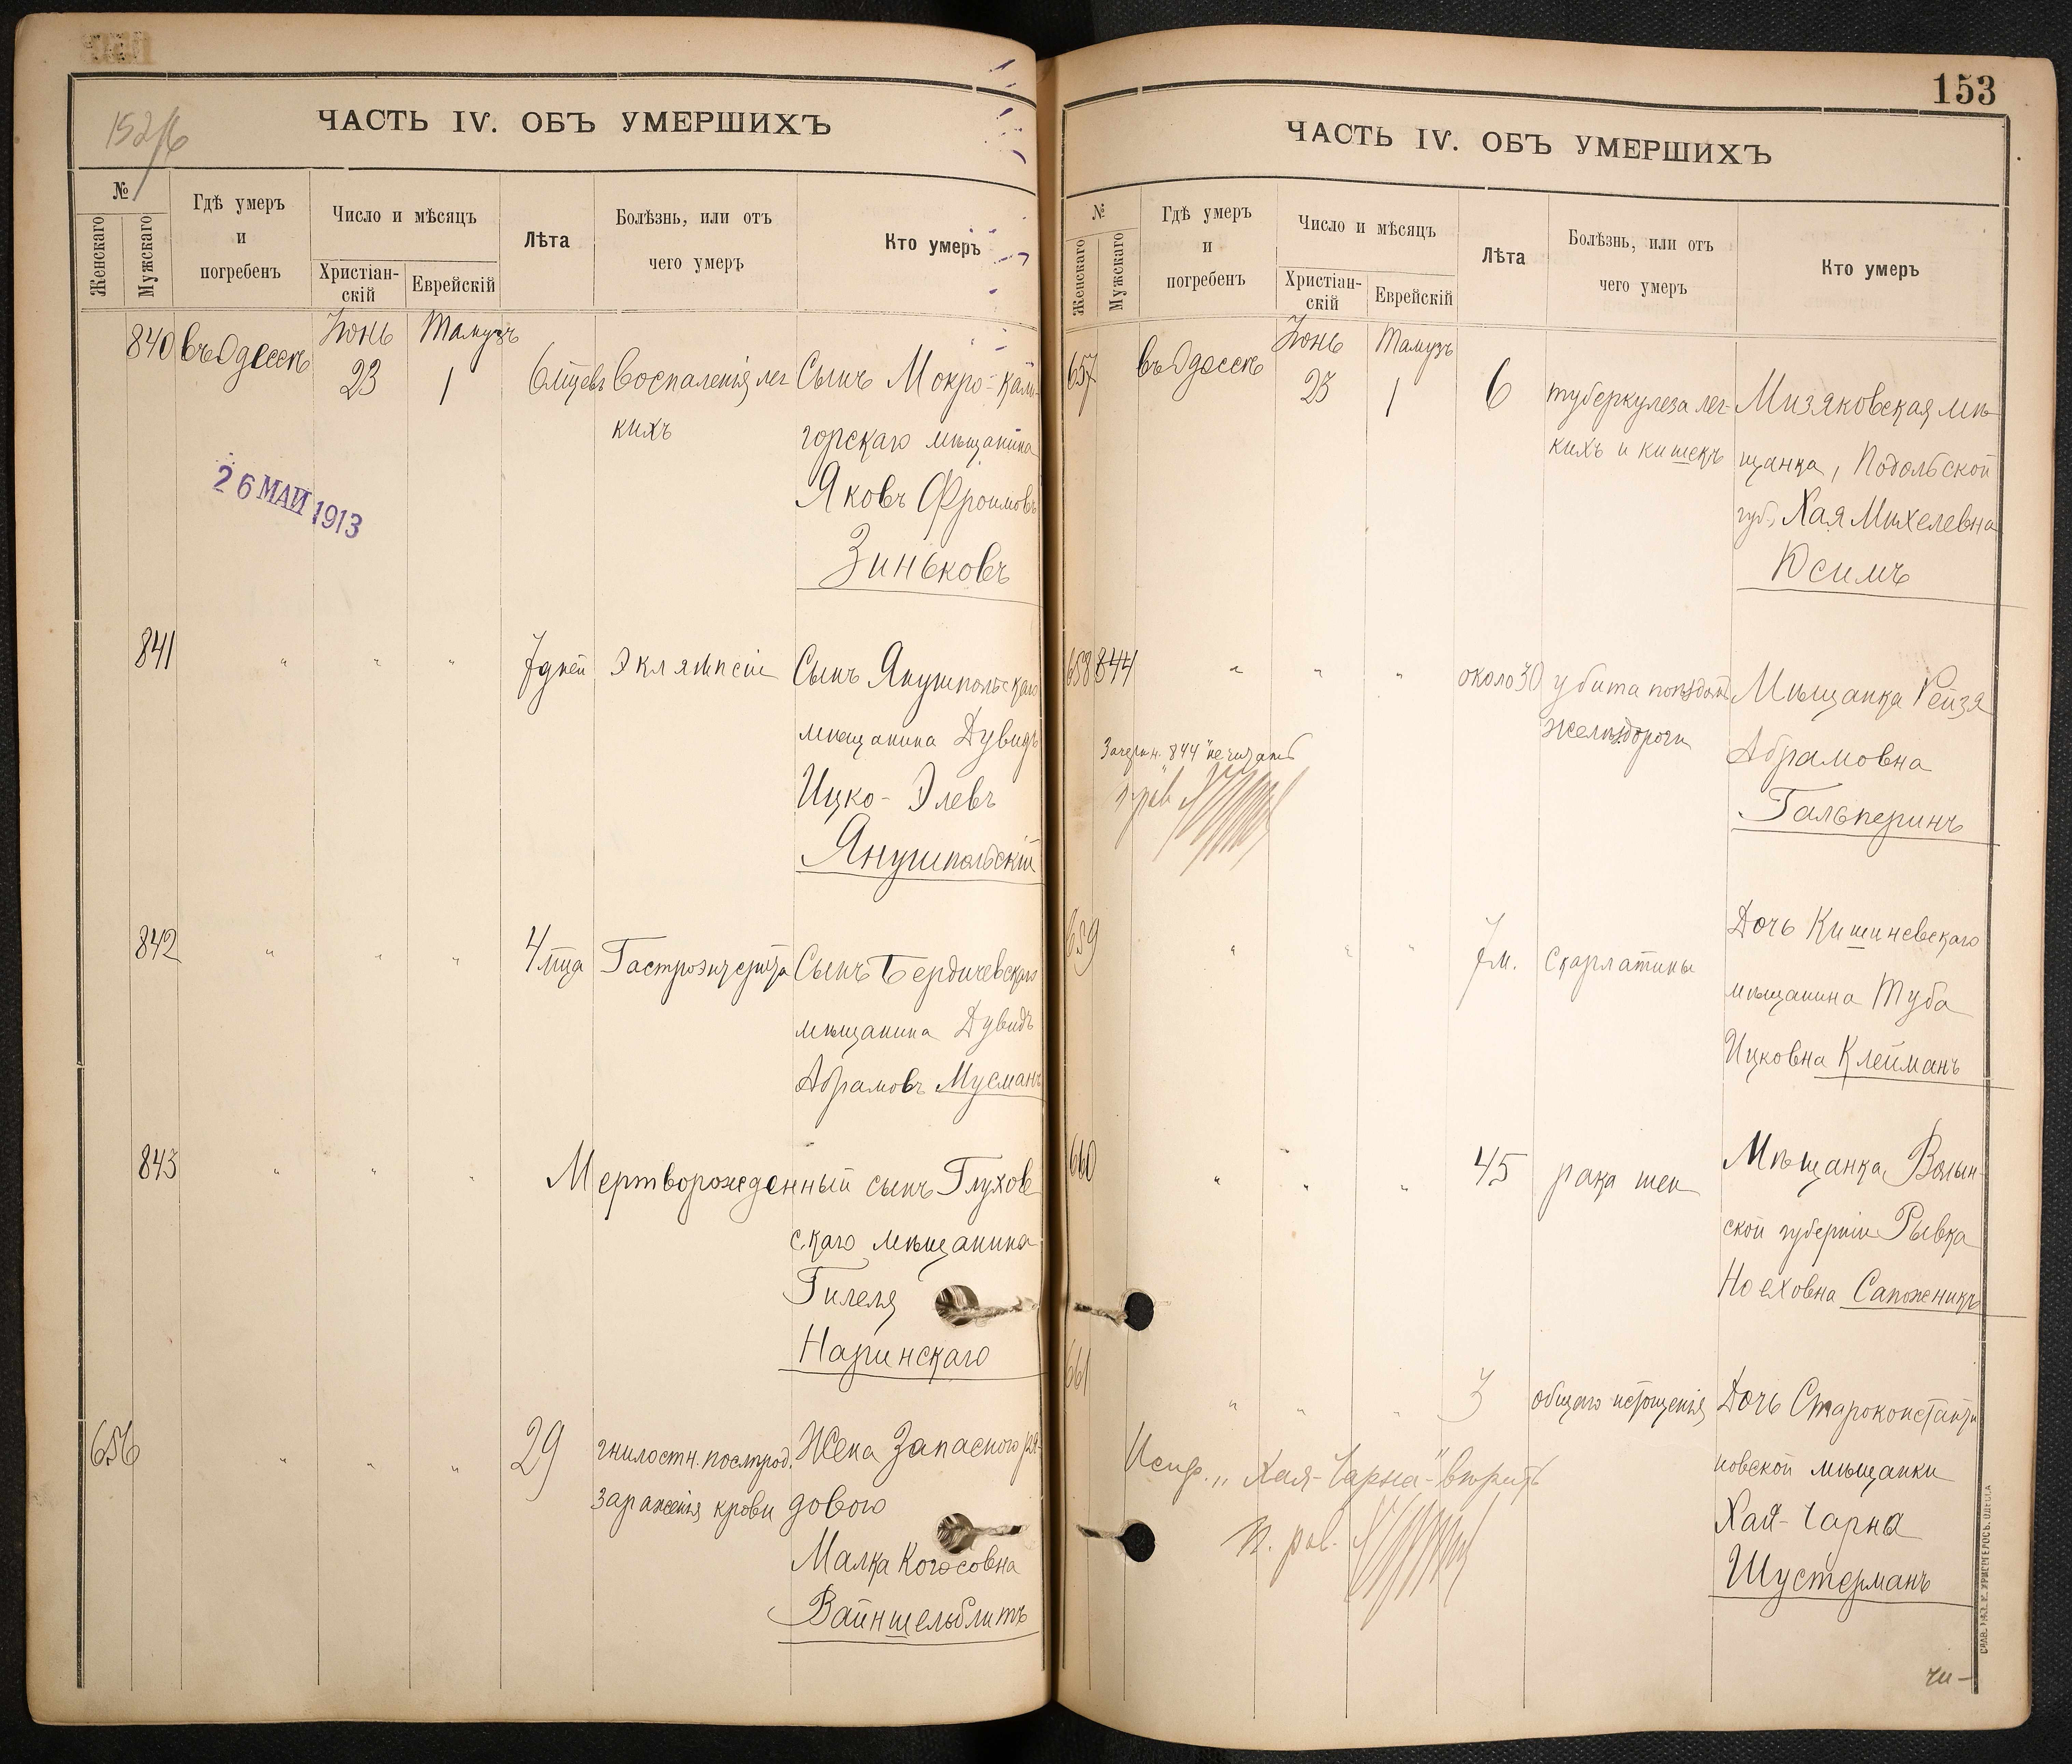 152/б
ЧАСТЬ IV. ОБЪ УМЕРШИХЪ
№
Женскаго
Мужскаго
Гдѣ умеръ
и
погребенъ
Число и мѣсяцъ
Христіан-
скій
Еврейскій
Лѣта
Болѣзнь, или отъ
чего умеръ
Кто умеръ
840 въ Одессѣ Іюнь 23 Тамузъ 1 6 мцевъ Воспаленія лег
кихъ
Сынъ Мокро-Кали-
горскаго мѣщанина
Яковъ Фроимовъ
Зиньковъ
26 МАЙ 1913
841 " " " 7 дней Эклямпсіи Сынъ Янушпольскаго
мѣщанина Дувидъ
Ицко-Элевъ
Янушпольскій
842 " " " 4 мца Гастроэнтерита Сынъ Бердичевскаго
мѣщанина Дувидъ
Абрамовъ Мусманъ
843 " " " Мертворожденный сынъ Глухов
скаго мѣщанина
Гилеля
Наринскаго
656 " " " 29 гнилостн. послѣрод.
зараженія крови
Жена Запасного ря-
дового
Малка
Вайншельблитъ
153
ЧАСТЬ IV. ОБЪ УМЕРШИХЪ
№
Женскаго
Мужскаго
Гдѣ умеръ
и
погребенъ
Число и мѣсяцъ
Христіан-
скій
Еврейскій
Лѣта
Болѣзнь, или отъ
чего умеръ
Кто умеръ
657 въ Одессѣ Іюнь 23 Тамузъ 1 6 туберкулеза лег-
кихъ и кишекъ
Мизяковская мѣ
щанка, Подольской
губ., Хая Михелевна
Юсимъ
658 844 " " " около 30 убита поѣздомъ
желѣз.дороги
Мѣщанка Рейзя
Абрамовна
Гальперинъ
Зачеркн. "844" не читать
п. рав.
659 " " " 7 м. Скарлатины Дочь Кишиневскаго
мѣщанина Туба
Ицковна Клейманъ
660 " " " 45 рака шеи Мѣщанка Волын-
ской губерніи Рывка
Ноеховна Сапожникъ
661 " " " 3 общаго истощенія Дочь Староконстанти
новской мѣщанки
Хая-Чарна
Шустерманъ
Испр. "Хая-Чарна" вѣрить
п. рав.
СЛАВ. ИЗД. Е. ХРИСТОГЕРОСЪ. ОДЕССА